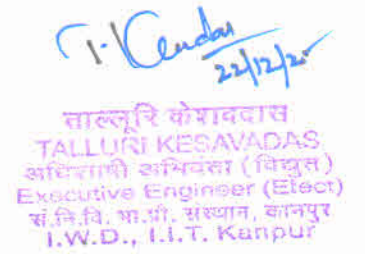 22/12/25
ताल्लूरि केशवदास
TALLURI KESAVADAS
अधिशाषी अभियंता (विद्युत)
Executive Engineer (Elect)
सं.नि.वि. भा.प्रौ. संस्थान, कानपुर
I.W.D., I.I.T. Kanpur